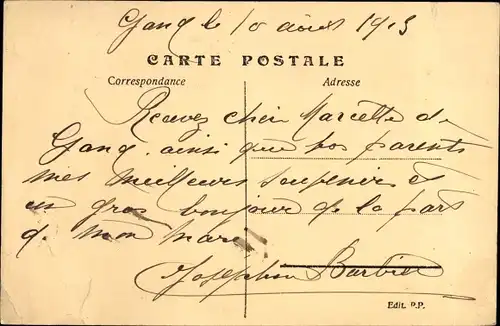 Gand le 10 août 1913
CARTE POSTALE
Correspondance
Adresse
Recevez chère Marcelle de
Gand ainsi que vos parents
mes meilleurs souvenirs et
un gros bonjour de la part
de mon mari
Joséphine Barbier
Edit. P.P.